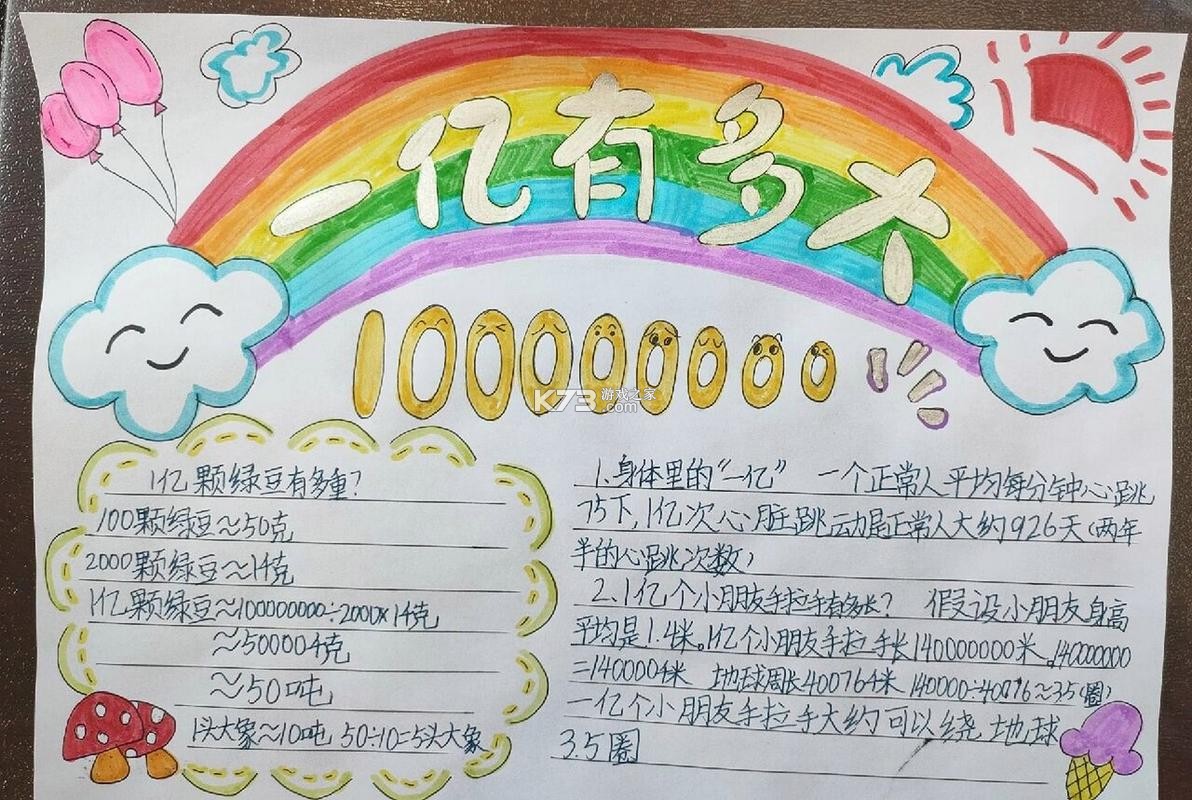 一亿有多大
100000000
K73 游戏之家
.com
1亿颗绿豆有多重?
100颗绿豆≈50克
2000颗绿豆≈1千克
1亿颗绿豆≈100000000÷2000×1千克
≈50000千克
≈50吨
1头大象≈10吨 50÷10=5头大象
1.身体里的“一亿” 一个正常人平均每分钟心跳
75下,1亿次心脏跳动尾正常人大约926天(两年
半的心跳次数)
2.1亿个小朋友手拉手有多长? 假设小朋友身高
平均是1.4米。1亿个小朋友手拉手长140000000米。140000000
=140000千米 地球周长40076千米 140000÷40076≈3.5(圈)
一亿个小朋友手拉手大约可以绕地球
3.5圈